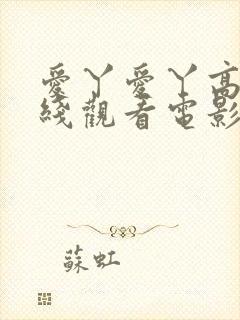 愛丫愛丫高
綫觀看電影
蘇虹